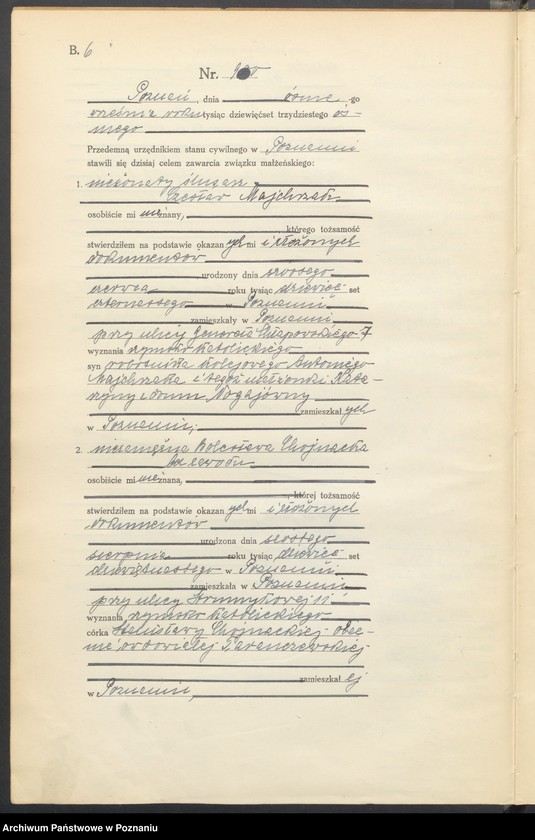 B. 6
Nr.
Poznań, dnia ósme go
września roku tysiąc dziewięćset trzydziestego ós-
mego
Przedemną urzędnikiem stanu cywilnego w Poznaniu
stawili się dzisiaj celem zawarcia związku małżeńskiego:
1. nieżonaty ślusarz
Czesław Majchrzak
osobiście mi nieznany,
którego tożsamość
stwierdziłem na podstawie okazanych mi i złożonych
dokumentów
urodzony dnia szóstego
czerwca roku tysiąc dziewięć set
czternastego w Poznaniu
zamieszkały w Poznaniu
przy ulicy Generała Chłapowskiego 7
wyznania rzymsko katolickiego
syn robotnika kolejowego Antoniego
Majchrzaka i tegoż małżonki Kata-
rzyny z domu Nogajówny
zamieszkałych
w Poznaniu,
2. niezamężna Bolesława Chojnacka
bez zawodu
osobiście mi nieznana,
której tożsamość
stwierdziłem na podstawie okazanych mi i złożonych
dokumentów
urodzona dnia szóstego
sierpnia roku tysiąc dziewięć set
dziewiętnastego w Poznaniu
zamieszkała w Poznaniu
przy ulicy Strumykowej 11
wyznania rzymsko katolickiego
córka Stanisławy Chojnackiej obec-
nie owdowiałej
zamieszkałej
w Poznaniu,
Archiwum Państwowe w Poznaniu